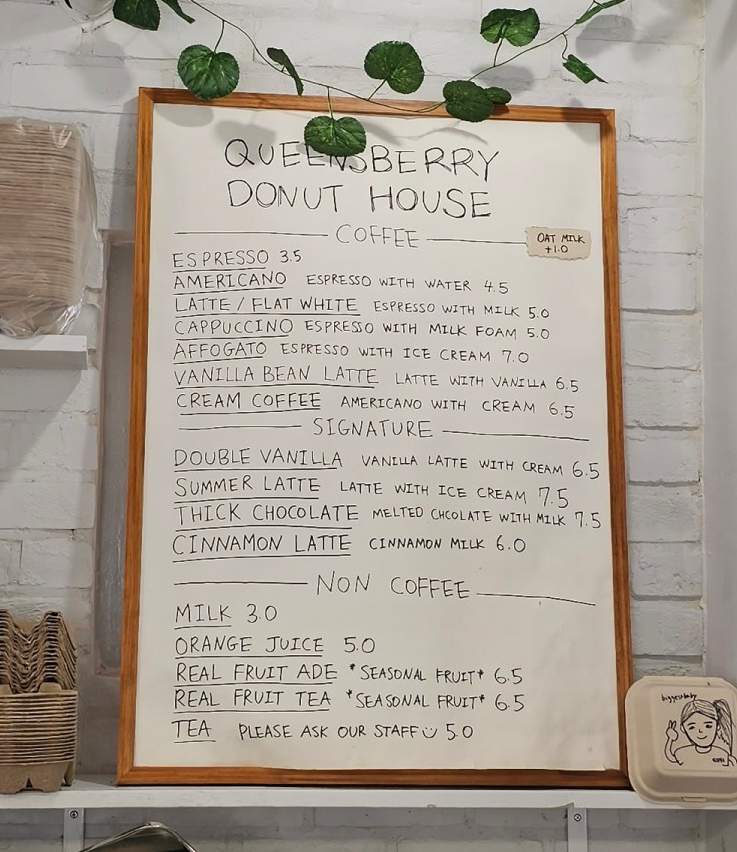 QUEENSBERRY
DONUT HOUSE
COFFEE
OAT MILK
+1.0
ESPRESSO 3.5
AMERICANO ESPRESSO WITH WATER 4.5
LATTE / FLAT WHITE ESPRESSO WITH MILK 5.0
CAPPUCCINO ESPRESSO WITH MILK FOAM 5.0
AFFOGATO ESPRESSO WITH ICE CREAM 7.0
VANILLA BEAN LATTE LATTE WITH VANILLA 6.5
CREAM COFFEE AMERICANO WITH CREAM 6.5
SIGNATURE
DOUBLE VANILLA VANILLA LATTE WITH CREAM 6.5
SUMMER LATTE LATTE WITH ICE CREAM 7.5
THICK CHOCOLATE MELTED CHCOLATE WITH MILK 7.5
CINNAMON LATTE CINNAMON MILK 6.0
NON COFFEE
MILK 3.0
ORANGE JUICE 5.0
REAL FRUIT ADE *SEASONAL FRUIT* 6.5
REAL FRUIT TEA *SEASONAL FRUIT* 6.5
TEA PLEASE ASK OUR STAFF 5.0